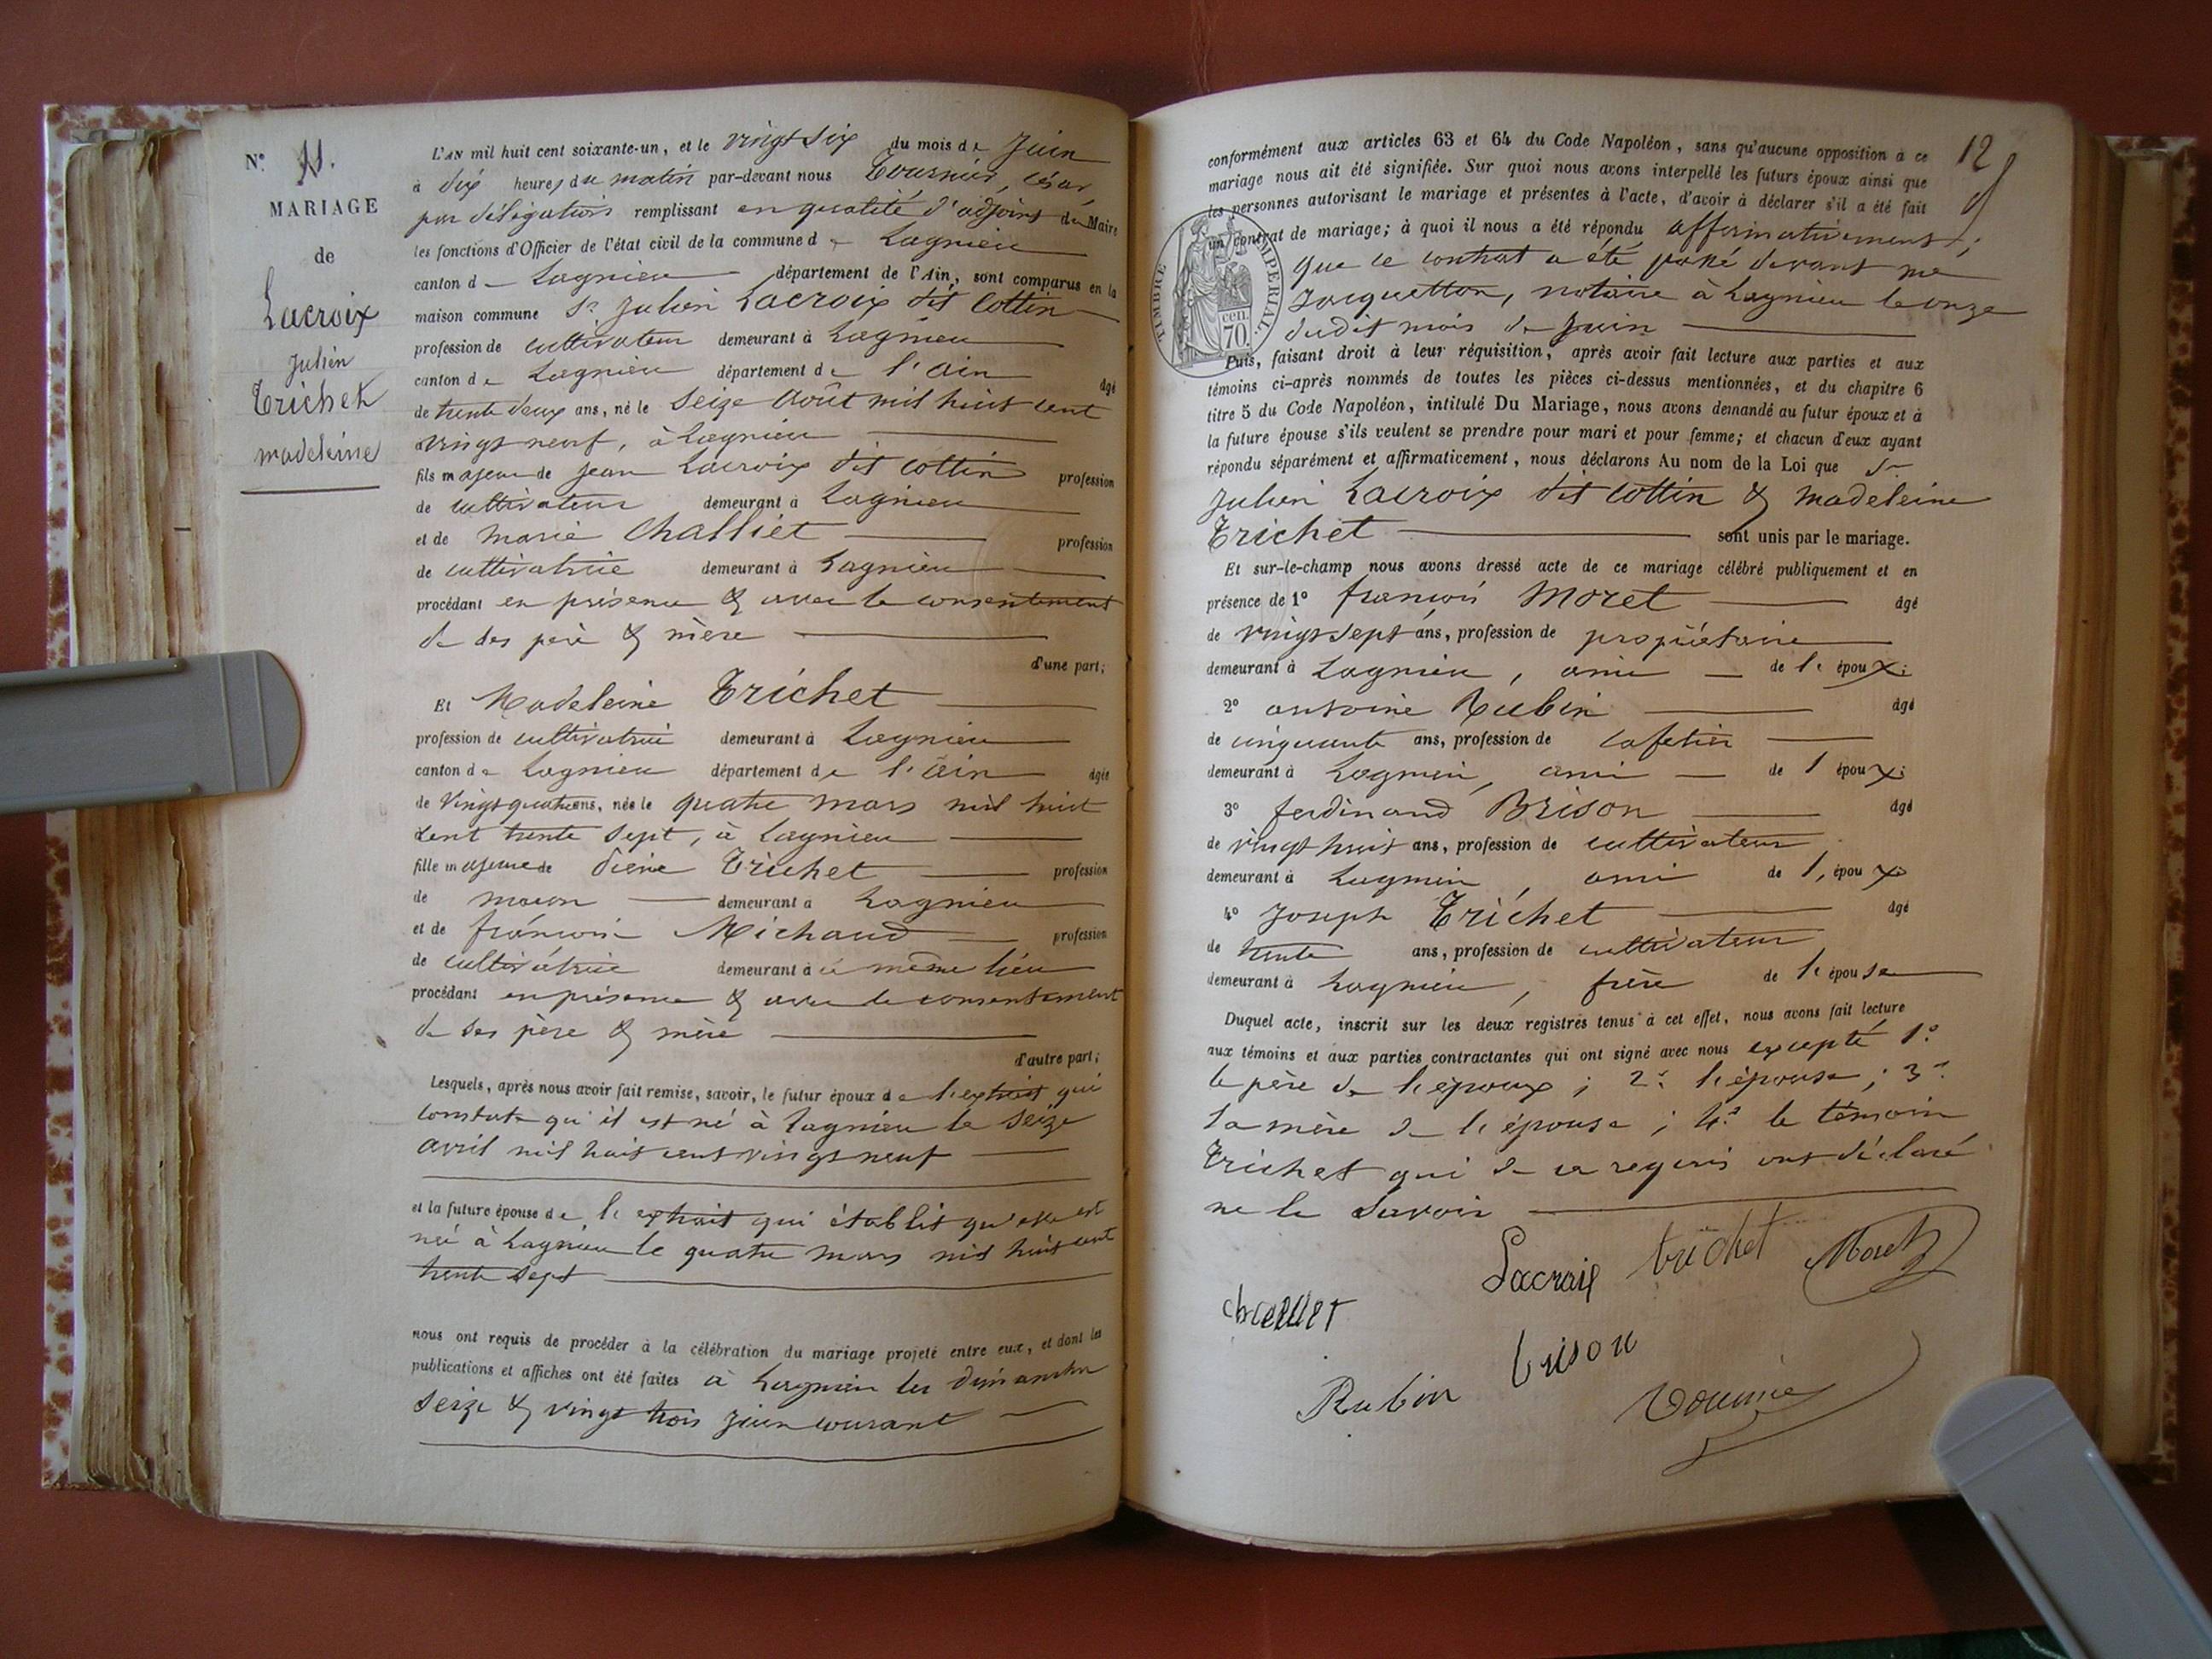 N° 11.
MARIAGE
de
Lacroix
Julien
Trichet
madeleine
L'AN mil huit cent soixante-un, et le vingt six du mois de Juin
à dix heures du matin par-devant nous Tournier, César
par délégation remplissant en qualité d'adjoint du Maire
les fonctions d'Officier de l'état civil de la commune de Lagnieu
canton de Lagnieu département de l'Ain, sont comparus en la
maison commune Sr Julien Lacroix dit Cottin
profession de cultivateur demeurant à Lagnieu
canton de Lagnieu département de l'ain âgé
de trente deux ans, né le Seize Août mil huit cent
vingt neuf, à Lagnieu
fils majeur de Jean Lacroix dit Cottin profession
de cultivateur demeurant à Lagnieu
et de marie Challiet profession
de cultivatrice demeurant à Lagnieu
procédant en présence & avec le consentement
de ses père & mère
d'une part;
Et Madeleine Trichet
profession de cultivatrice demeurant à Lagnieu
canton de Lagnieu département de l'ain âgée
de vingt quatre ans, née le quatre mars mil huit
cent trente sept, à Lagnieu
fille majeure de Pierre Trichet profession
de maçon demeurant à Lagnieu
et de françoise Michaud profession
de cultivatrice demeurant à ce même lieu
procédant en présence & avec le consentement
de ses père & mère
d'autre part;
Lesquels, après nous avoir fait remise, savoir, le futur époux de l'extrait qui
constate qu'il est né à Lagnieu le seize
avril mil huit cent vingt neuf
et la future épouse de l'extrait qui établit qu'elle est
née à Lagnieu le quatre mars mil huit cent
trente sept
nous ont requis de procéder à la célébration du mariage projeté entre eux, et dont les
publications et affiches ont été faites à Lagnieu les dimanches
seize & vingt trois juin courant
12
conformément aux articles 63 et 64 du Code Napoléon, sans qu'aucune opposition à ce
mariage nous ait été signifiée. Sur quoi nous avons interpellé les futurs époux ainsi que
les personnes autorisant le mariage et présentes à l'acte, d'avoir à déclarer s'il a été fait
un contrat de mariage; à quoi il nous a été répondu affirmativement;
que le contrat a été passé devant me
Jacquetton, notaire à Lagnieu le onze
dudit mois de Juin
TIMBRE IMPERIAL.
cen.
70.
Puis, faisant droit à leur réquisition, après avoir fait lecture aux parties et aux
témoins ci-après nommés de toutes les pièces ci-dessus mentionnées, et du chapitre 6
titre 5 du Code Napoléon, intitulé Du Mariage, nous avons demandé au futur époux et à
la future épouse s'ils veulent se prendre pour mari et pour femme; et chacun d'eux ayant
répondu séparément et affirmativement, nous déclarons Au nom de la Loi que Sr
Julien Lacroix dit Cottin & Madeleine
Trichet sont unis par le mariage.
Et sur-le-champ nous avons dressé acte de ce mariage célébré publiquement et en
présence de 1° françois Moret âgé
de vingt sept ans, profession de propriétaire
demeurant à Lagnieu, ami de l'époux;
2° antoine Rubin âgé
de cinquante ans, profession de cafetier
demeurant à Lagnieu, ami de l'époux;
3° ferdinand Brison âgé
de vingt huit ans, profession de cultivateur
demeurant à Lagnieu, ami de l'époux;
4° Joseph Trichet âgé
de trente ans, profession de cultivateur
demeurant à Lagnieu, frère de l'épouse
Duquel acte, inscrit sur les deux registres tenus à cet effet, nous avons fait lecture
aux témoins et aux parties contractantes qui ont signé avec nous excepté 1°
le père de l'époux; 2° l'épouse; 3°
la mère de l'épouse; 4° le témoin
Trichet qui de ce requis ont déclaré
ne le savoir
Lacroix trichet Moret
challiet
brison
Rubin Tournier